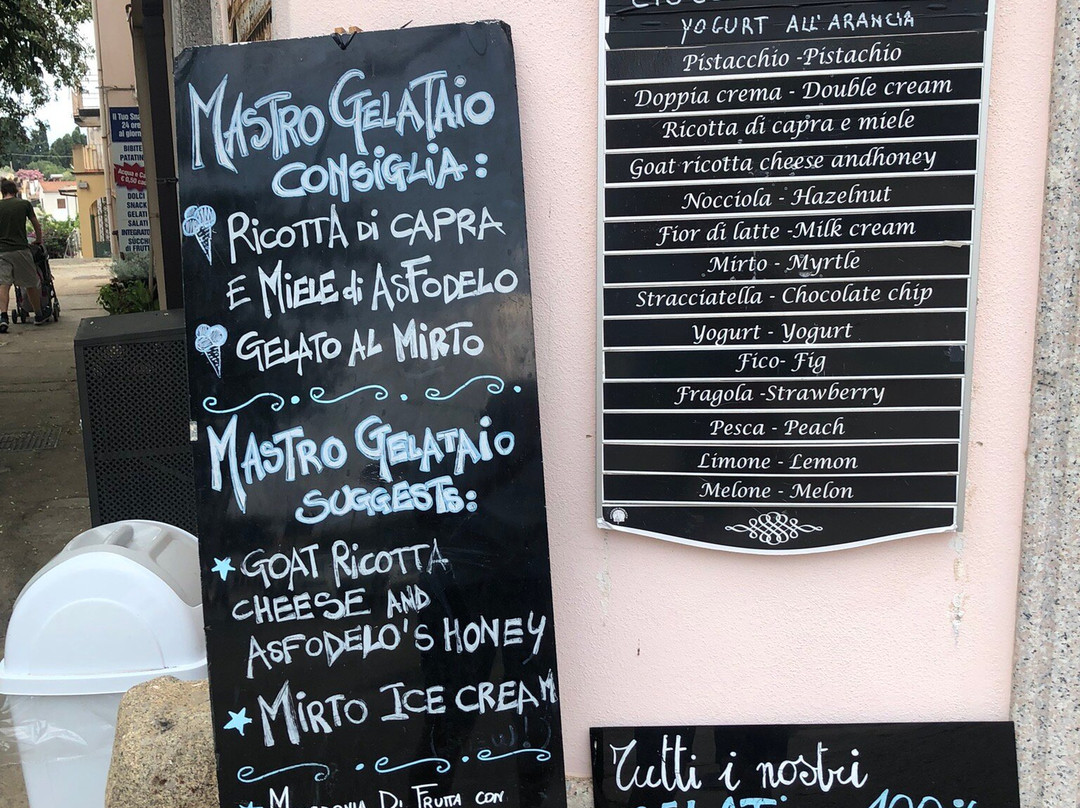 MASTRO GELATAIO
CONSIGLIA:
RICOTTA di CAPRA
E MIELE di ASFODELO
GELATO AL MIRTO
MASTRO GELATAIO
SUGGESTS:
GOAT RICOTTA
CHEESE AND
ASFODELO'S HONEY
MIRTO ICE CREAM
DI FRUTTA CON
YOGURT ALL'ARANCIA
Pistacchio -Pistachio
Doppia crema - Double cream
Ricotta di capra e miele
Goat ricotta cheese andhoney
Nocciola - Hazelnut
Fior di latte -Milk cream
Mirto - Myrtle
Stracciatella - Chocolate chip
Yogurt - Yogurt
Fico- Fig
Fragola -Strawberry
Pesca - Peach
Limone - Lemon
Melone - Melon
Tutti i nostri
Il Tuo
24 ore
al giorno
BIBITE
PATATINE
Acqua e
€ 0,50
DOLCI
SNACK
GELATI
SALATI
INTEGRATORI
SUCCHI
di FRUTTA